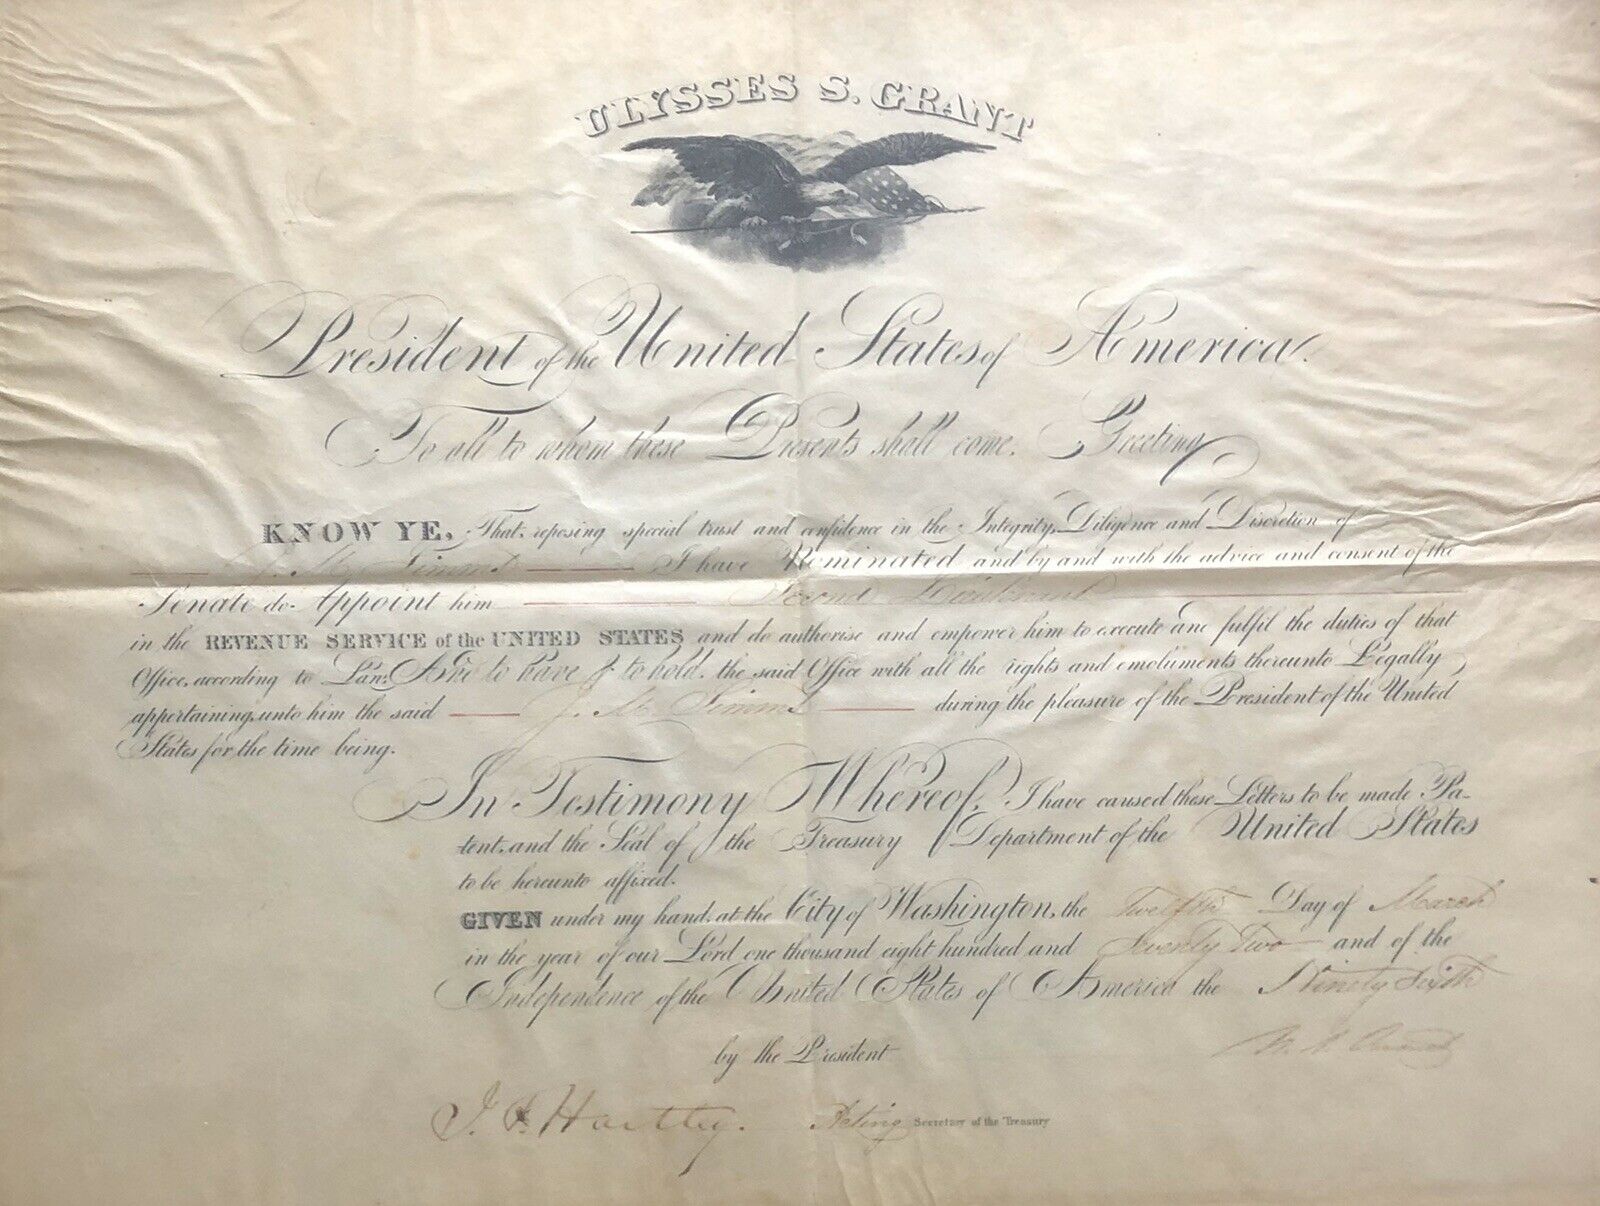 ULYSSES S. GRANT
President of the United States of America.
To all to whom these Presents shall come. Greeting
KNOW YE, That reposing special trust and confidence in the Integrity, Diligence and Discretion of
J. M. Simms I have Nominated and by and with the advice and consent of the
Senate do Appoint him Second Lieutenant
in the REVENUE SERVICE of the UNITED STATES and do authorise and empower him to execute and fulfil the duties of that
Office, according to Law: And to have & to hold, the said Office with all the rights and emoluments thereunto Legally
appertaining, unto him the said J. M. Simms during the pleasure of the President of the United
States for the time being.
In Testimony Whereof, I have caused these Letters to be made Pa-
tent, and the Seal of the Treasury Department of the United States
to be hereunto affixed.
GIVEN under my hand, at the City of Washington, the Twelfth Day of March
in the year of our Lord one thousand eight hundred and Seventy Two and of the
Independence of the United States of America the Ninety Sixth
U. S. Grant
by the President
J. F. Hartley. Acting Secretary of the Treasury